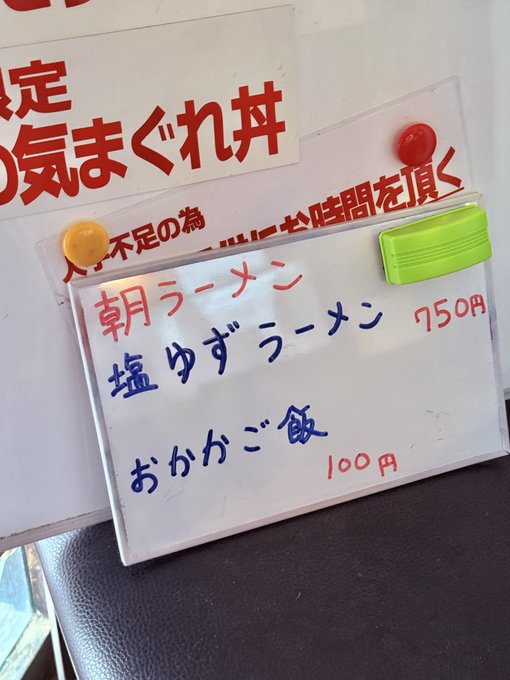 限定
の気まぐれ丼
不足の為
にお時間を頂く
朝ラーメン
塩ゆずラーメン 750円
おかかご飯
100円